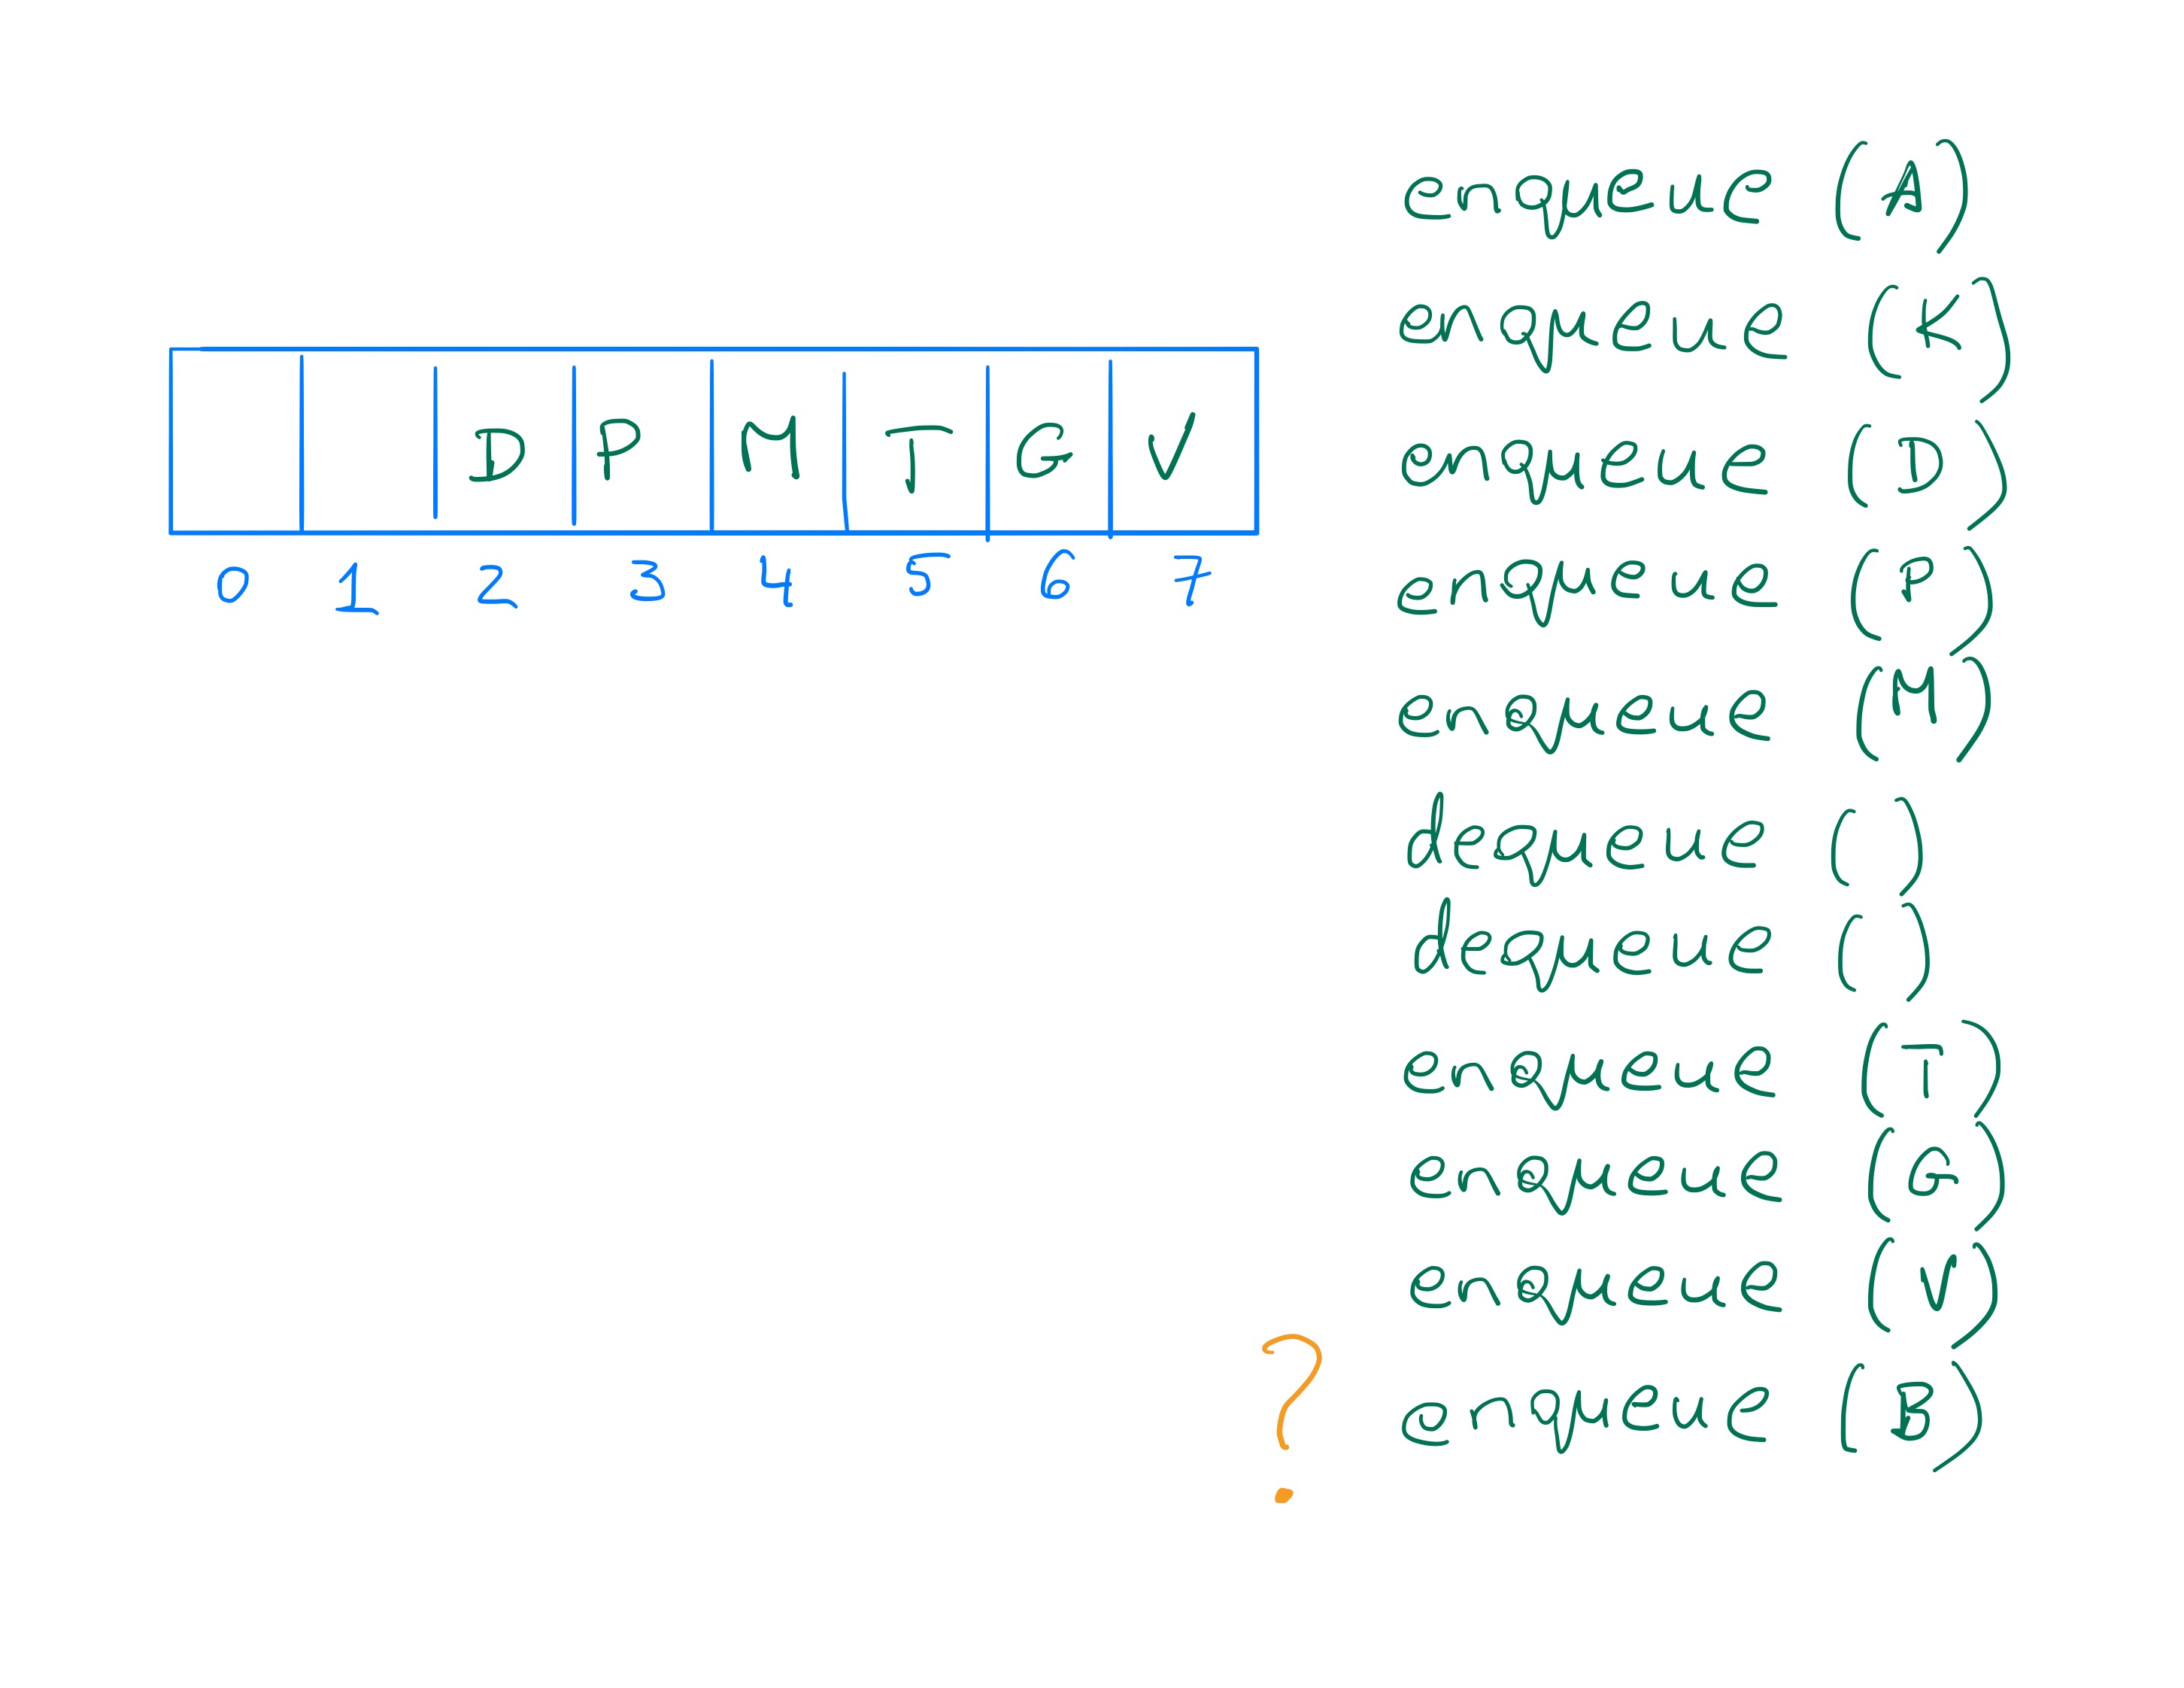 D P M T G V
0 1 2 3 4 5 6 7
enqueue (A)
enqueue (K)
enqueue (D)
enqueue (P)
enqueue (M)
dequeue ( )
dequeue ( )
enqueue (T)
enqueue (G)
enqueue (V)
? enqueue (B)